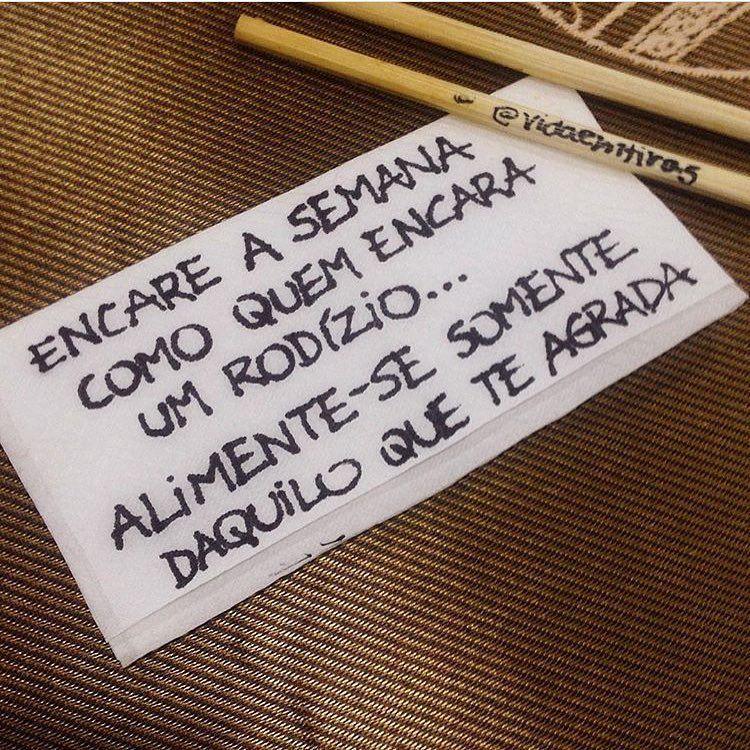 @vidaemtiras
ENCARE A SEMANA
COMO QUEM ENCARA
UM RODÍZIO...
ALiMENTE-SE SOMENTE
DAQUILO QUE TE AGRADA